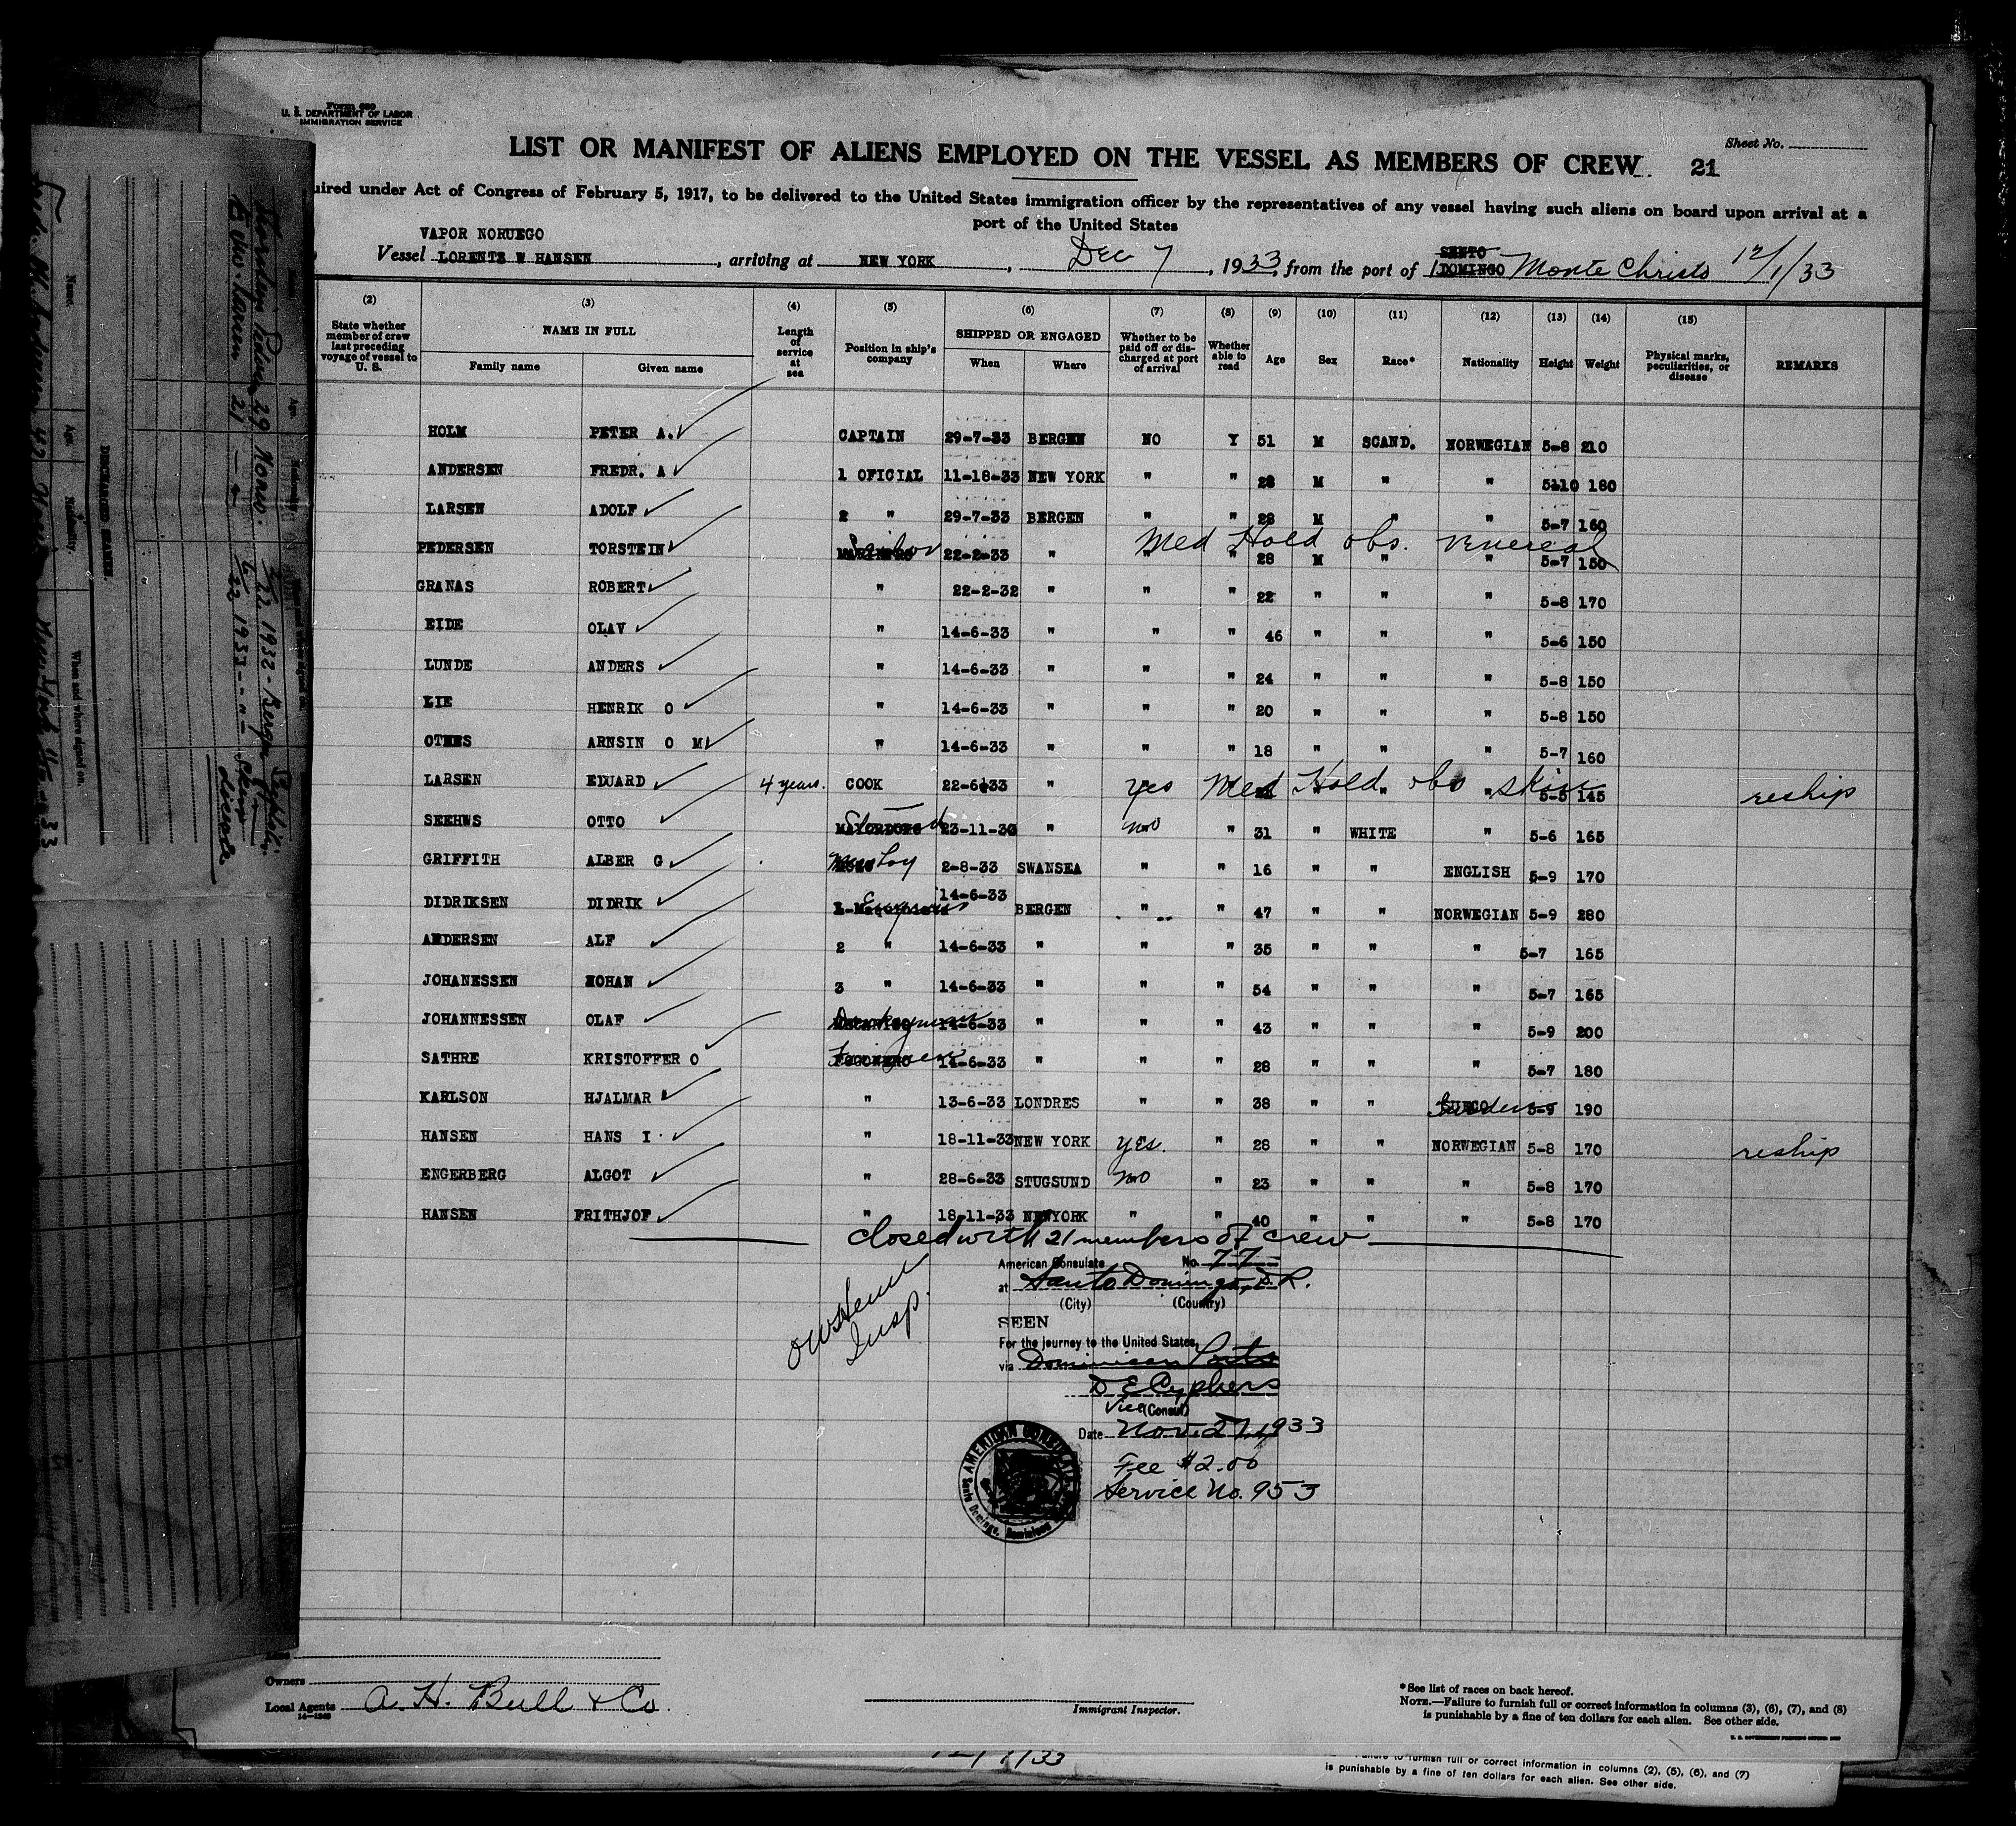 Form 680
U. S. DEPARTMENT OF LABOR
IMMIGRATION SERVICE
Sheet No.
LIST OR MANIFEST OF ALIENS EMPLOYED ON THE VESSEL AS MEMBERS OF CREW 21
uired under Act of Congress of February 5, 1917, to be delivered to the United States immigration officer by the representatives of any vessel having such aliens on board upon arrival at a
port of the United States
VAPOR NORUEGO
Vessel LORENTZ W HANSEN, arriving at NEW YORK, Dec 7, 1933, from the port of SANTO DOMINGO Monte Christo 12/1/33
(2) (3) (4) (5) (6) (7) (8) (9) (10) (11) (12) (13) (14) (15)
State whether member of crew last preceding voyage of vessel to U. S.
NAME IN FULL
Family name Given name
Length of service at sea
Position in ship's company
SHIPPED OR ENGAGED
When Where
Whether to be paid off or discharged at port of arrival
Whether able to read
Age Sex Race* Nationality Height Weight
Physical marks, peculiarities, or disease
REMARKS
HOLM PETER A. CAPTAIN 29-7-33 BERGEN NO Y 51 M SCAND. NORWEGIAN 5-8 210
ANDERSEN FREDR. A 1 OFICIAL 11-18-33 NEW YORK " " 28 M " " 5110 180
LARSEN ADOLF 2 " 29-7-33 BERGEN " " 28 M " " 5-7 160
PEDERSEN TORSTEIN Sailor 22-2-33 " " " 28 M " " 5-7 150 Med Hold obs. venereal
GRANAS ROBERT " 22-2-32 " " " 22 " " " 5-8 170
EIDE OLAV " 14-6-33 " " " 46 " " " 5-6 150
LUNDE ANDERS " 14-6-33 " " " 24 " " " 5-8 150
LIE HENRIK O " 14-6-33 " " " 20 " " " 5-8 150
OTNES ARNSIN O M " 14-6-33 " " " 18 " " " 5-7 160
LARSEN EDUARD 4 years. COOK 22-6-33 " yes Med Hold obs skin " " 5-5 145 reship
SEEHWS OTTO Steward 23-11-30 " no " 31 " WHITE " 5-6 165
GRIFFITH ALBER G Messboy 2-8-33 SWANSEA " " 16 " " ENGLISH 5-9 170
DIDRIKSEN DIDRIK 14-6-33 BERGEN " " 47 " " NORWEGIAN 5-9 280
ANDERSEN ALF 2 " 14-6-33 " " " 35 " " " 5-7 165
JOHANESSEN JOHAN 3 " 14-6-33 " " " 54 " " " 5-7 165
JOHANNESSEN OLAF Donkeyman 14-6-33 " " " 43 " " " 5-9 200
SATHRE KRISTOFFER O FOGONERO 14-6-33 " " " 28 " " " 5-7 180
KARLSON HJALMAR " 13-6-33 LONDRES " " 38 " " Sweden 5-9 190
HANSEN HANS I " 18-11-33 NEW YORK yes. " 28 " " NORWEGIAN 5-8 170 reship
ENGERBERG ALGOT " 28-6-33 STUGSUND no " 23 " " " 5-8 170
HANSEN FRITHJOF " 18-11-33 NEWYORK " " 40 " " " 5-8 170
Closed with 21 members of crew
American Consulate No. 77
at Santo Domingo, D.R.
(City) (Country)
Insp.
SEEN
For the journey to the United States,
via Dominican Ports
D E Cyphers
Vice (Consul)
Date Nov. 27, 1933
Fee $2.00
Service No. 953
AMERICAN CONSULATE
Santo Domingo, Dominican
Owners
Local Agents A. H. Bull & Co.
Immigrant Inspector.
*See list of races on back hereof.
NOTE.—Failure to furnish full or correct information in columns (3), (6), (7), and (8)
is punishable by a fine of ten dollars for each alien. See other side.
Failure to furnish full or correct information in columns (2), (5), (6), and (7)
is punishable by a fine of ten dollars for each alien. See other side.
DISCHARGED SEAMEN.
Name. Age. Nationality. When and where signed on.